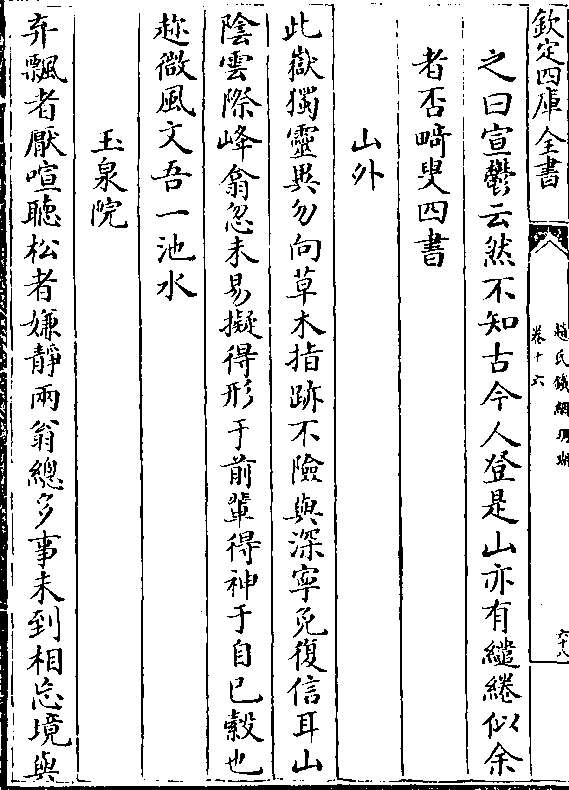 欽定四庫全書
趙氏鐵網珊瑚
卷十六
六十八
之曰宣鬱云然不知古今人登是山亦有繾綣似余
者否畸叟四書
山外
此嶽獨靈異勿向草木指跡不險與深寧免復信耳山
陰雲際峰翕忽未易擬得形于前輩得神于自已縠也
趂微風文吾一池水
玉泉院
弃飄者厭喧聽松者嫌靜兩翁總多事未到相忘境與